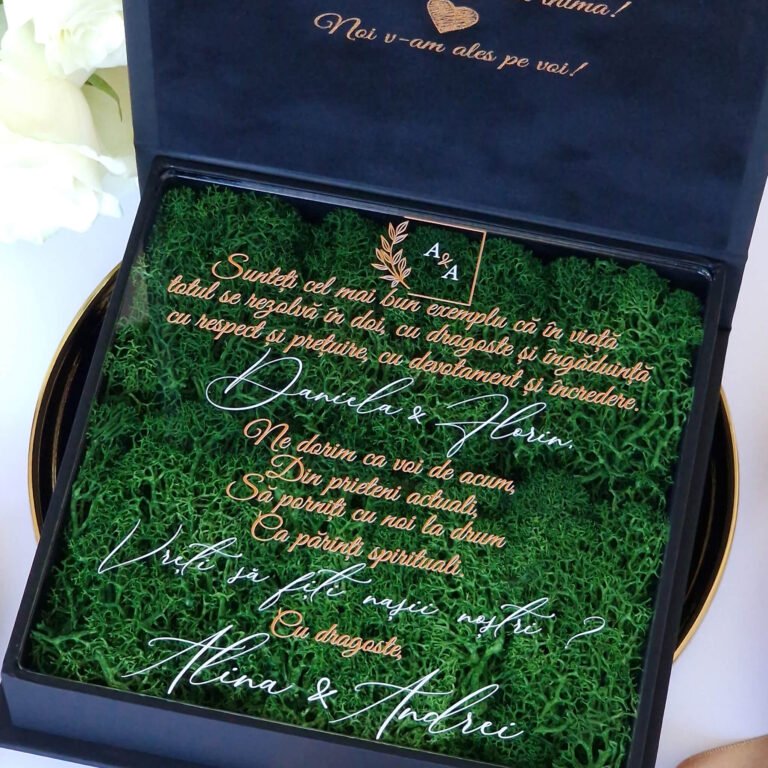 inima!
Noi v-am ales pe voi!
A & A
Sunteți cel mai bun exemplu că în viață
totul se rezolvă în doi, cu dragoste și îngăduință
cu respect și prețuire, cu devotament și încredere.
Daniela & Florin,
Ne dorim ca voi de acum,
Din prieteni actuali,
Să porniți cu noi la drum
Ca părinți spirituali.
Vreți să fiți nașii noștri ?
Cu dragoste,
Alina & Andrei